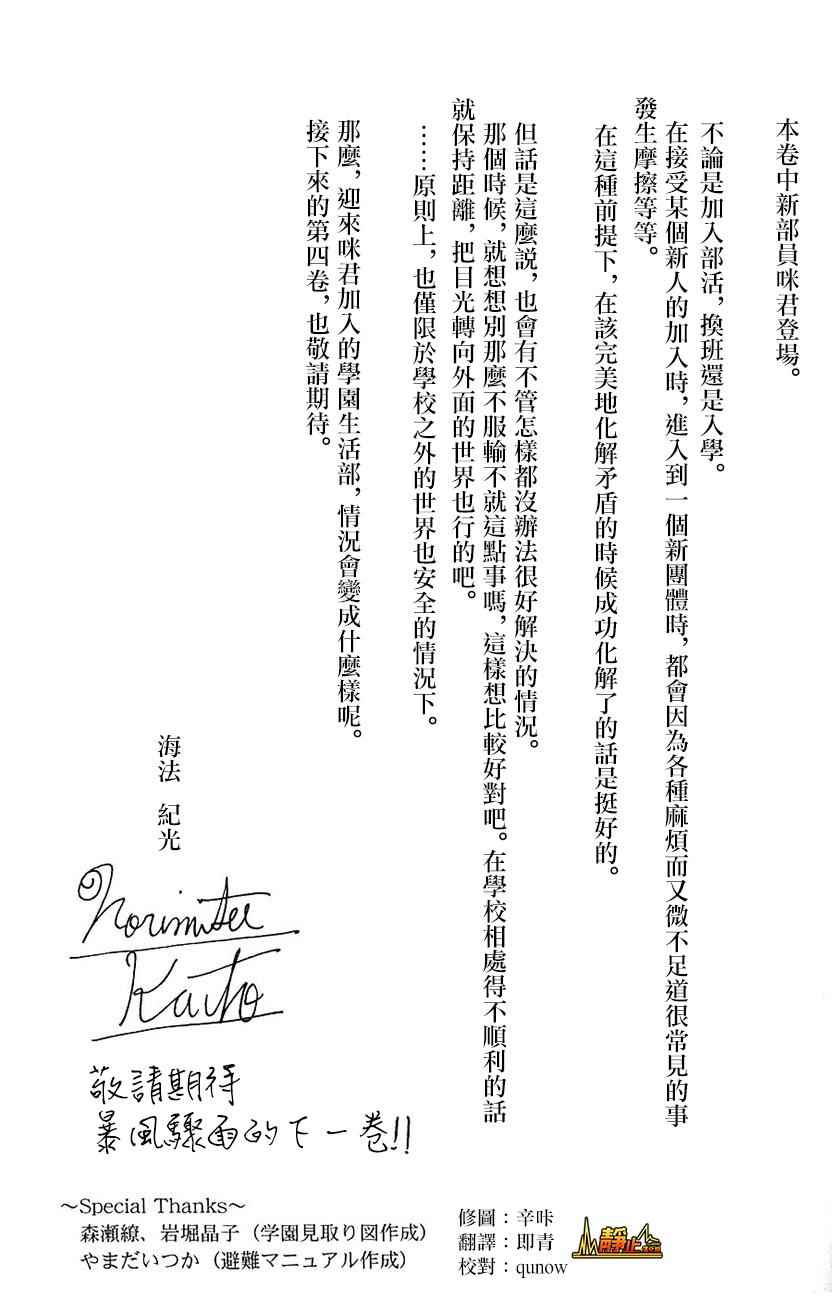 本卷中新部員咪君登場。
不論是加入部活，換班還是入學。
在接受某個新人的加入時，進入到一個新團體時，都會因為各種麻煩而又微不足道很常見的事
發生摩擦等等。
在這種前提下，在該完美地化解矛盾的時候成功化解了的話是挺好的。
但話是這麼説，也會有不管怎樣都沒辦法很好解決的情況。
那個時候，就想想別那麼不服輸不就這點事嗎，這樣想比較好對吧。在學校相處得不順利的話
就保持距離，把目光轉向外面的世界也行的吧。
……原則上，也僅限於學校之外的世界也安全的情況下。
那麼，迎來咪君加入的學園生活部，情況會變成什麼樣呢。
接下來的第四卷，也敬請期待。
海法 紀光
Norimitsu
Kaiho
敬請期待
暴風驟雨的下一卷!!
～Special Thanks～
森瀬繚、岩堀晶子（学園見取り図作成）
やまだいつか（避難マニュアル作成）
修圖：辛咔
翻譯：即青
校對：qunow
靜止